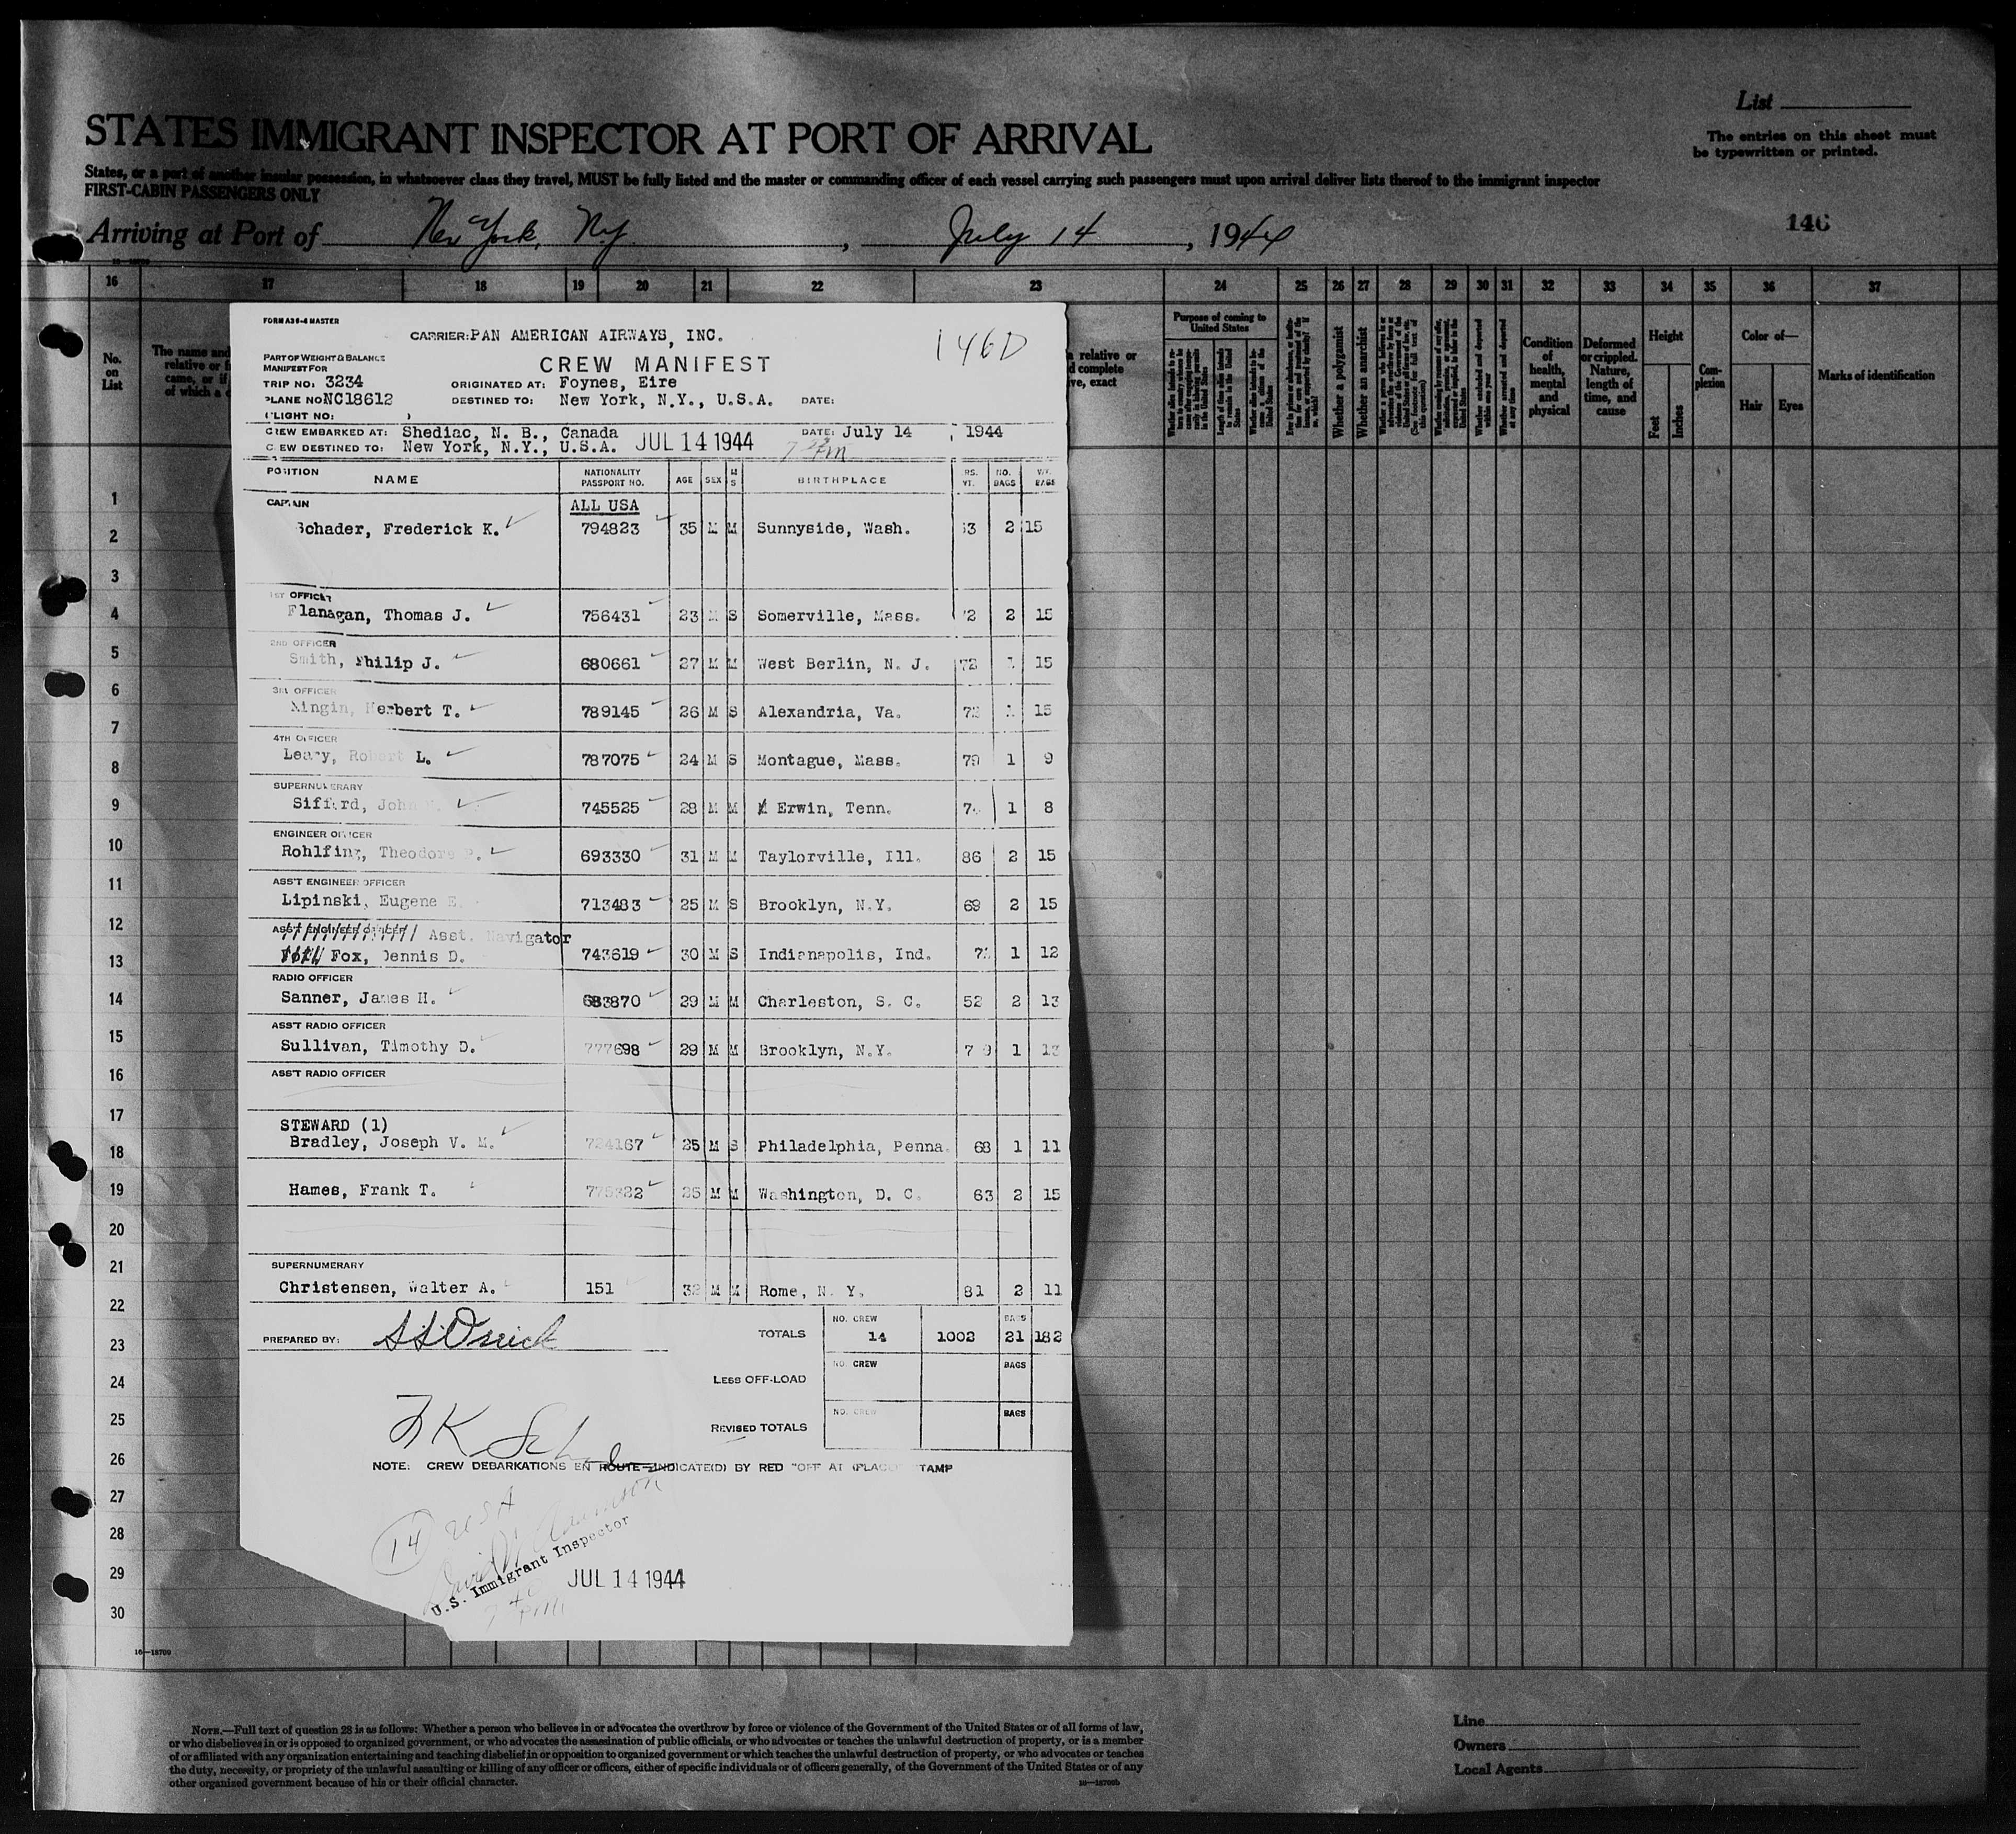 List
The entries on this sheet must
be typewritten or printed.
STATES IMMIGRANT INSPECTOR AT PORT OF ARRIVAL
States, or a part of another insular possession, in whatsoever class they travel, MUST be fully listed and the master or commanding officer of each vessel carrying such passengers must upon arrival deliver lists thereof to the immigrant inspector
FIRST-CABIN PASSENGERS ONLY
Arriving at Port of New York, Ny , July 14 , 1944
146
16 17 18 19 20 21 22 23 24 25 26 27 28 29 30 31 32 33 34 35 36 37
No. on List
The name and
relative or
came, or if
of which a
a relative or
complete
exact
Purpose of coming to United States
Whether a polygamist
Whether an anarchist
Condition of health, mental and physical
Deformed or crippled. Nature, length of time, and cause
Height
Feet
Inches
Com-plexion
Color of—
Hair
Eyes
Marks of identification
FORM A36-4 MASTER
CARRIER: PAN AMERICAN AIRWAYS, INC.
146D
PART OF WEIGHT & BALANCE
MANIFEST FOR
CREW MANIFEST
TRIP NO: 3234 ORIGINATED AT: Foynes, Eire
PLANE NO NC18612 DESTINED TO: New York, N.Y., U.S.A. DATE:
FLIGHT NO:
CREW EMBARKED AT: Shediac, N. B., Canada DATE: July 14, 1944
CREW DESTINED TO: New York, N.Y., U.S.A. JUL 14 1944
POSITION NAME NATIONALITY PASSPORT NO. AGE SEX M S BIRTHPLACE NO. BAGS WT. BAGS
CAPTAIN ALL USA
Schader, Frederick K. 794823 35 M M Sunnyside, Wash. 2 15
1ST OFFICER
Flanagan, Thomas J. 756431 23 M S Somerville, Mass. 72 2 15
2ND OFFICER
Smith, Philip J. 680661 27 M M West Berlin, N. J. 72 1 15
3RD OFFICER
Herbert T. 789145 26 M S Alexandria, Va. 1 15
4TH OFFICER
Leary, Robert L. 787075 24 M S Montague, Mass. 79 1 9
SUPERNUMERARY
Sifford, John 745525 28 M M Erwin, Tenn. 1 8
ENGINEER OFFICER
Rohlfing, Theodore P. 693330 31 M M Taylorville, Ill. 86 2 15
ASS'T ENGINEER OFFICER
Lipinski, Eugene E. 713483 25 M S Brooklyn, N.Y. 69 2 15
ASS'T ENGINEER OFFICER Asst. Navigator
Fox, Dennis D. 743619 30 M S Indianapolis, Ind. 1 12
RADIO OFFICER
Sanner, James H. 683870 29 M M Charleston, S. C. 52 2 13
ASS'T RADIO OFFICER
Sullivan, Timothy D. 777698 29 M M Brooklyn, N.Y. 79 1 13
ASS'T RADIO OFFICER
STEWARD (1)
Bradley, Joseph V. M. 724167 25 M S Philadelphia, Penna. 68 1 11
Hames, Frank T. 25 M M Washington, D. C. 63 2 15
SUPERNUMERARY
Christensen, Walter A. 151 32 M M Rome, N. Y. 81 2 11
PREPARED BY:
TOTALS NO. CREW 14 1002 BAGS 21 182
LESS OFF-LOAD NO. CREW BAGS
REVISED TOTALS NO. CREW BAGS
F K Schader
NOTE: CREW DEBARKATIONS EN ROUTE INDICATE(D) BY RED "OFF AT (PLACE)" STAMP
14 USA
U.S. Immigrant Inspector
JUL 14 1944
1
2
3
4
5
6
7
8
9
10
11
12
13
14
15
16
17
18
19
20
21
22
23
24
25
26
27
28
29
30
16—18700
NOTE.—Full text of question 28 is as follows: Whether a person who believes in or advocates the overthrow by force or violence of the Government of the United States or of all forms of law,
or who disbelieves in or is opposed to organized government, or who advocates the assassination of public officials, or who advocates or teaches the unlawful destruction of property, or is a member
of or affiliated with any organization entertaining and teaching disbelief in or opposition to organized government or which teaches the unlawful destruction of property, or who advocates or teaches
the duty, necessity, or propriety of the unlawful assaulting or killing of any officer or officers, either of specific individuals or of officers generally, of the Government of the United States or of any
other organized government because of his or their official character.
Line
Owners
Local Agents